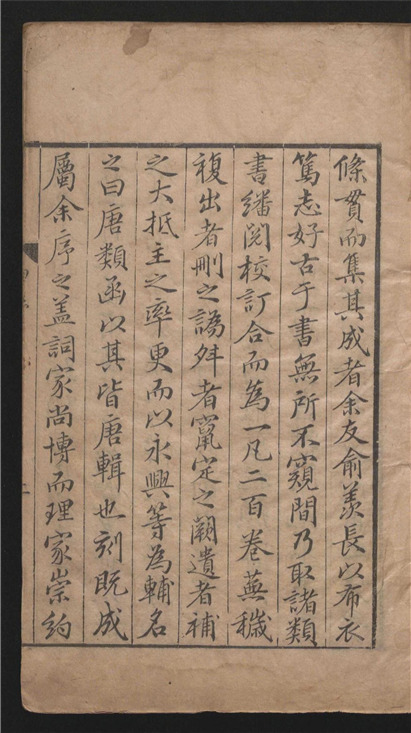 條貫而集其成者余友俞羨長以布衣
篤志好古于書無所不窺間乃取諸類
書繙閱校訂合而為一凡二百卷蕪穢
複出者刪之譌舛者竄定之闕遺者補
之大抵主之率更而以永興等為輔名
之曰唐類函以其皆唐輯也刻既成
屬余序之盖詞家尚博而理家崇約